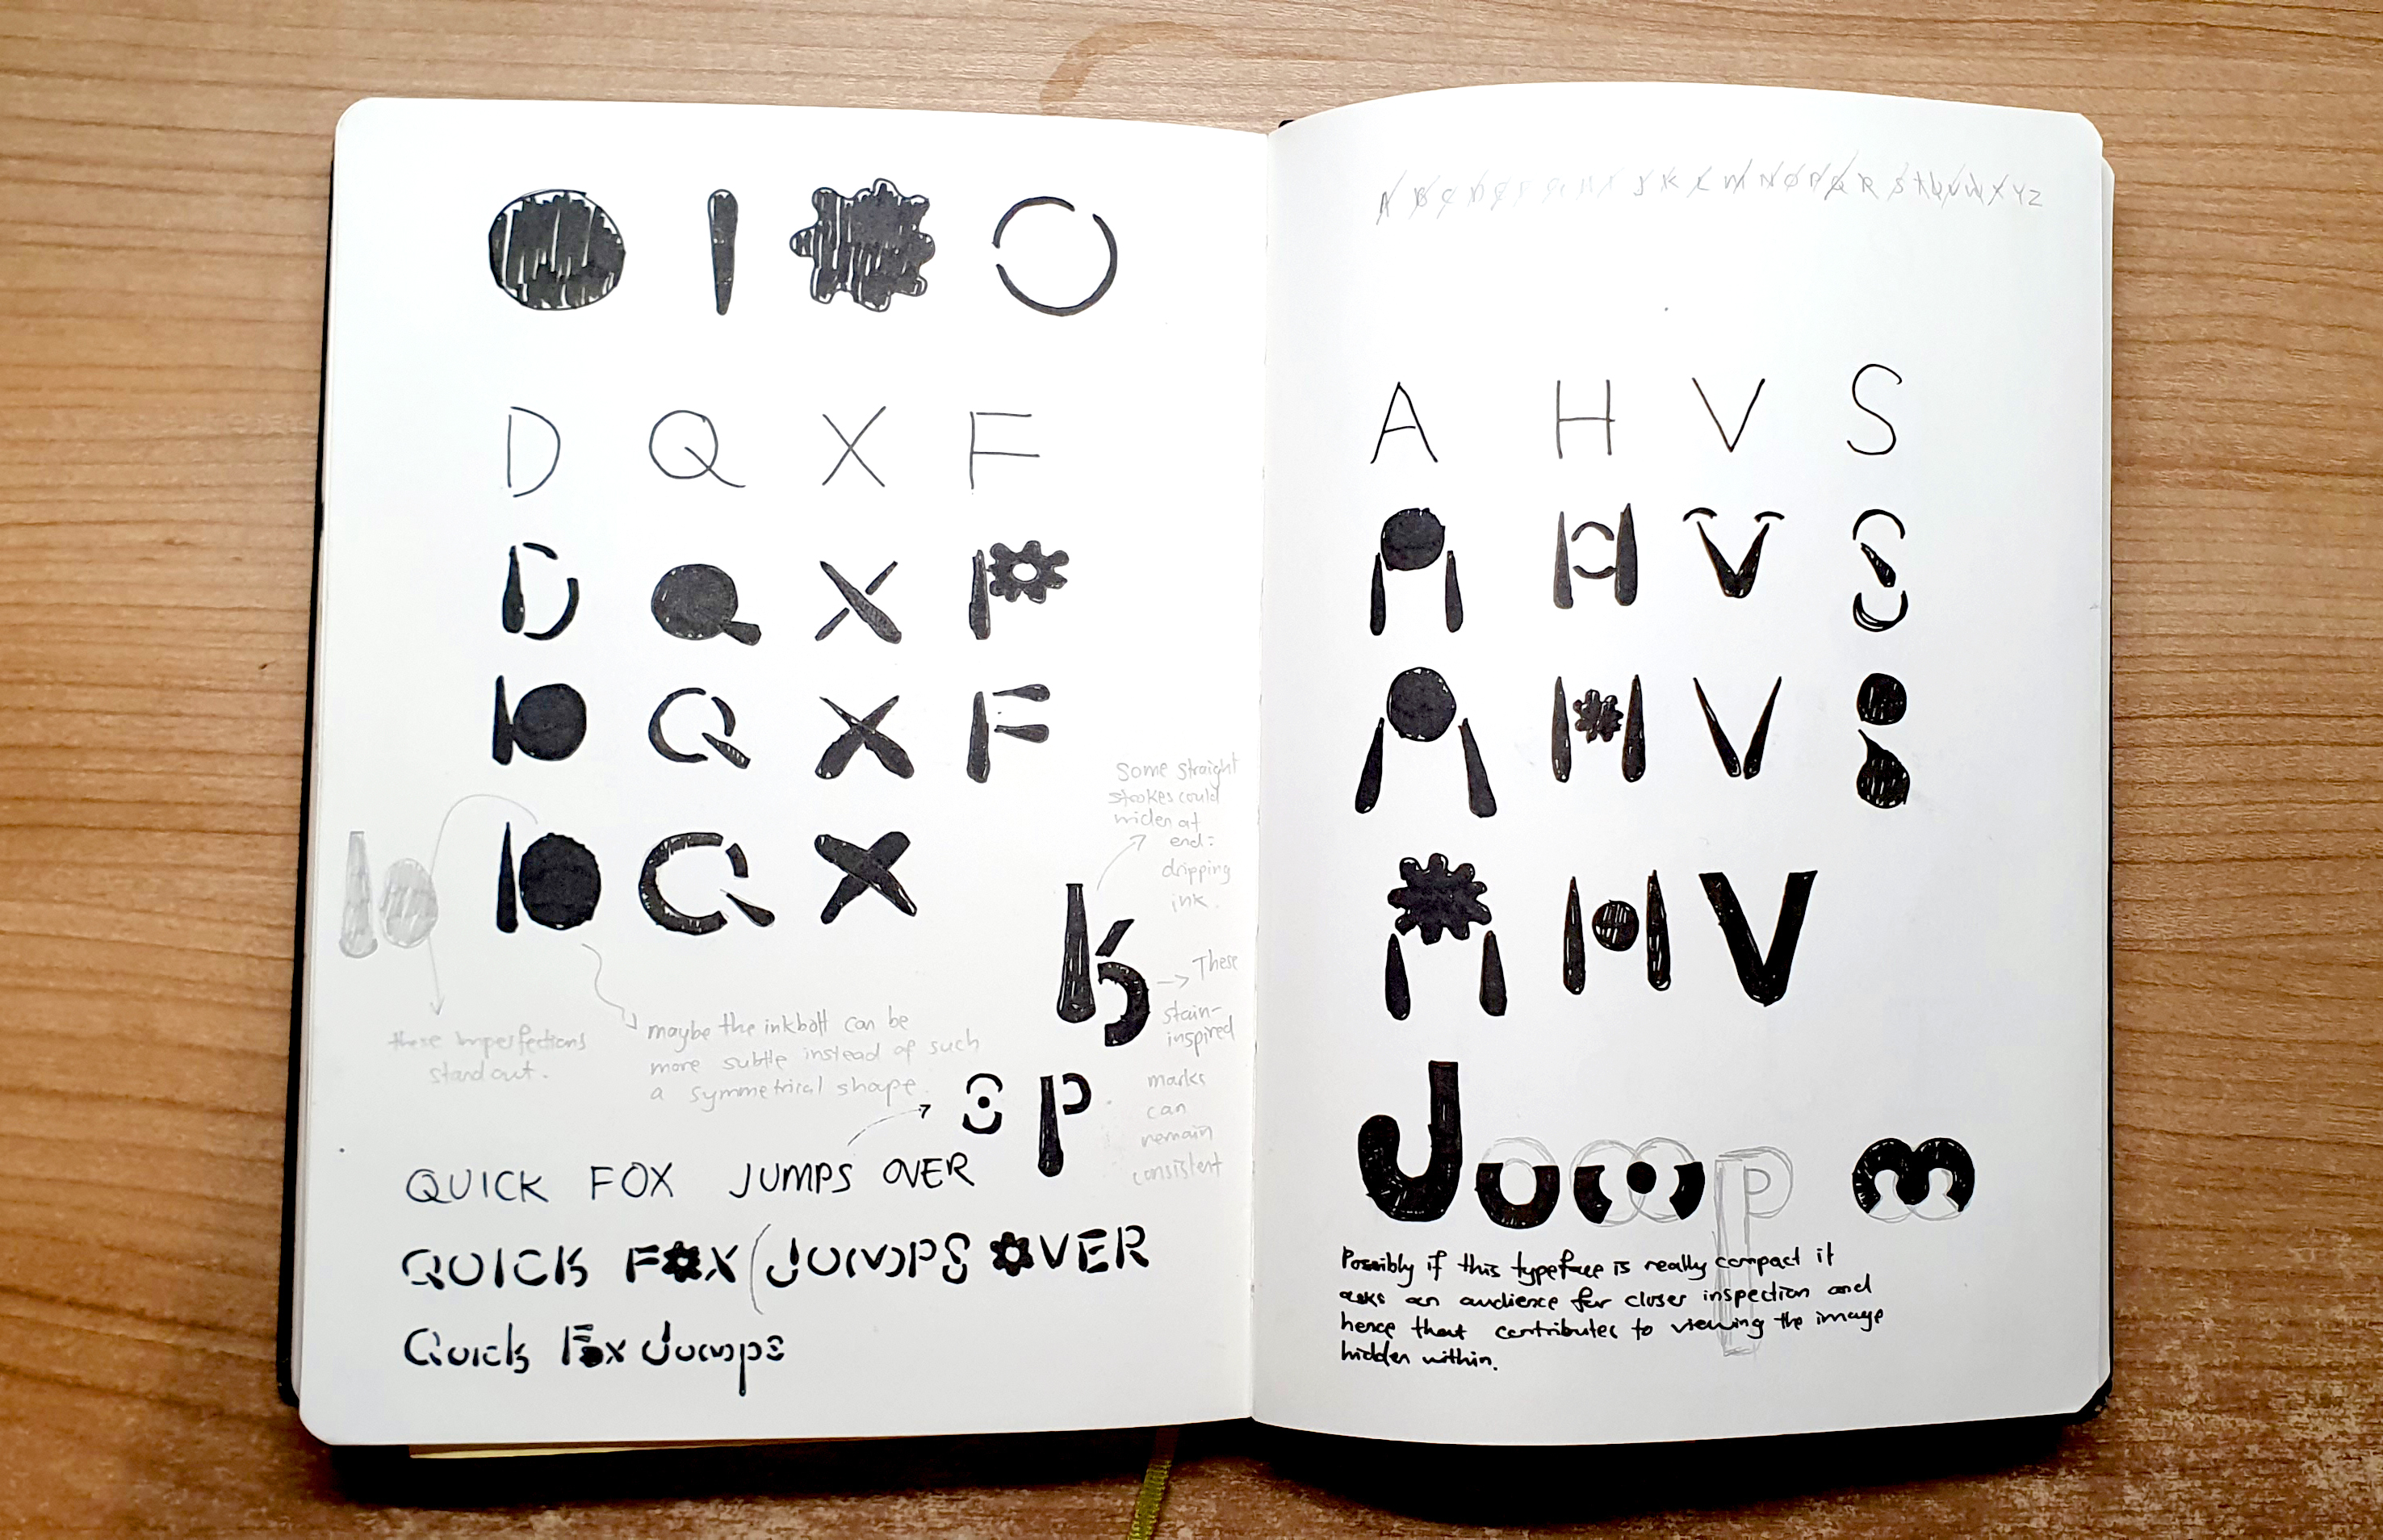 D Q X F
D Q X F
D Q X F
D Q X
Some straight
strokes could
widen at
end:
dripping
ink.
K
→ These
stain-
inspired
marks
can
remain
consistent
these imperfections
stand out.
maybe the inkbott can be
more subtle instead of such
a symmetrical shape.
S P
QUICK FOX JUMPS OVER
QUICK FOX (JUMPS OVER
Quick Fox Jumps
A B C D E F G H I J K L M N O P Q R S T U V W X Y Z
A H V S
A H V S
A H V S
A H V
Jump m
Possibly if this typeface is really compact it
asks an audience for closer inspection and
hence that contributes to viewing the image
hidden within.